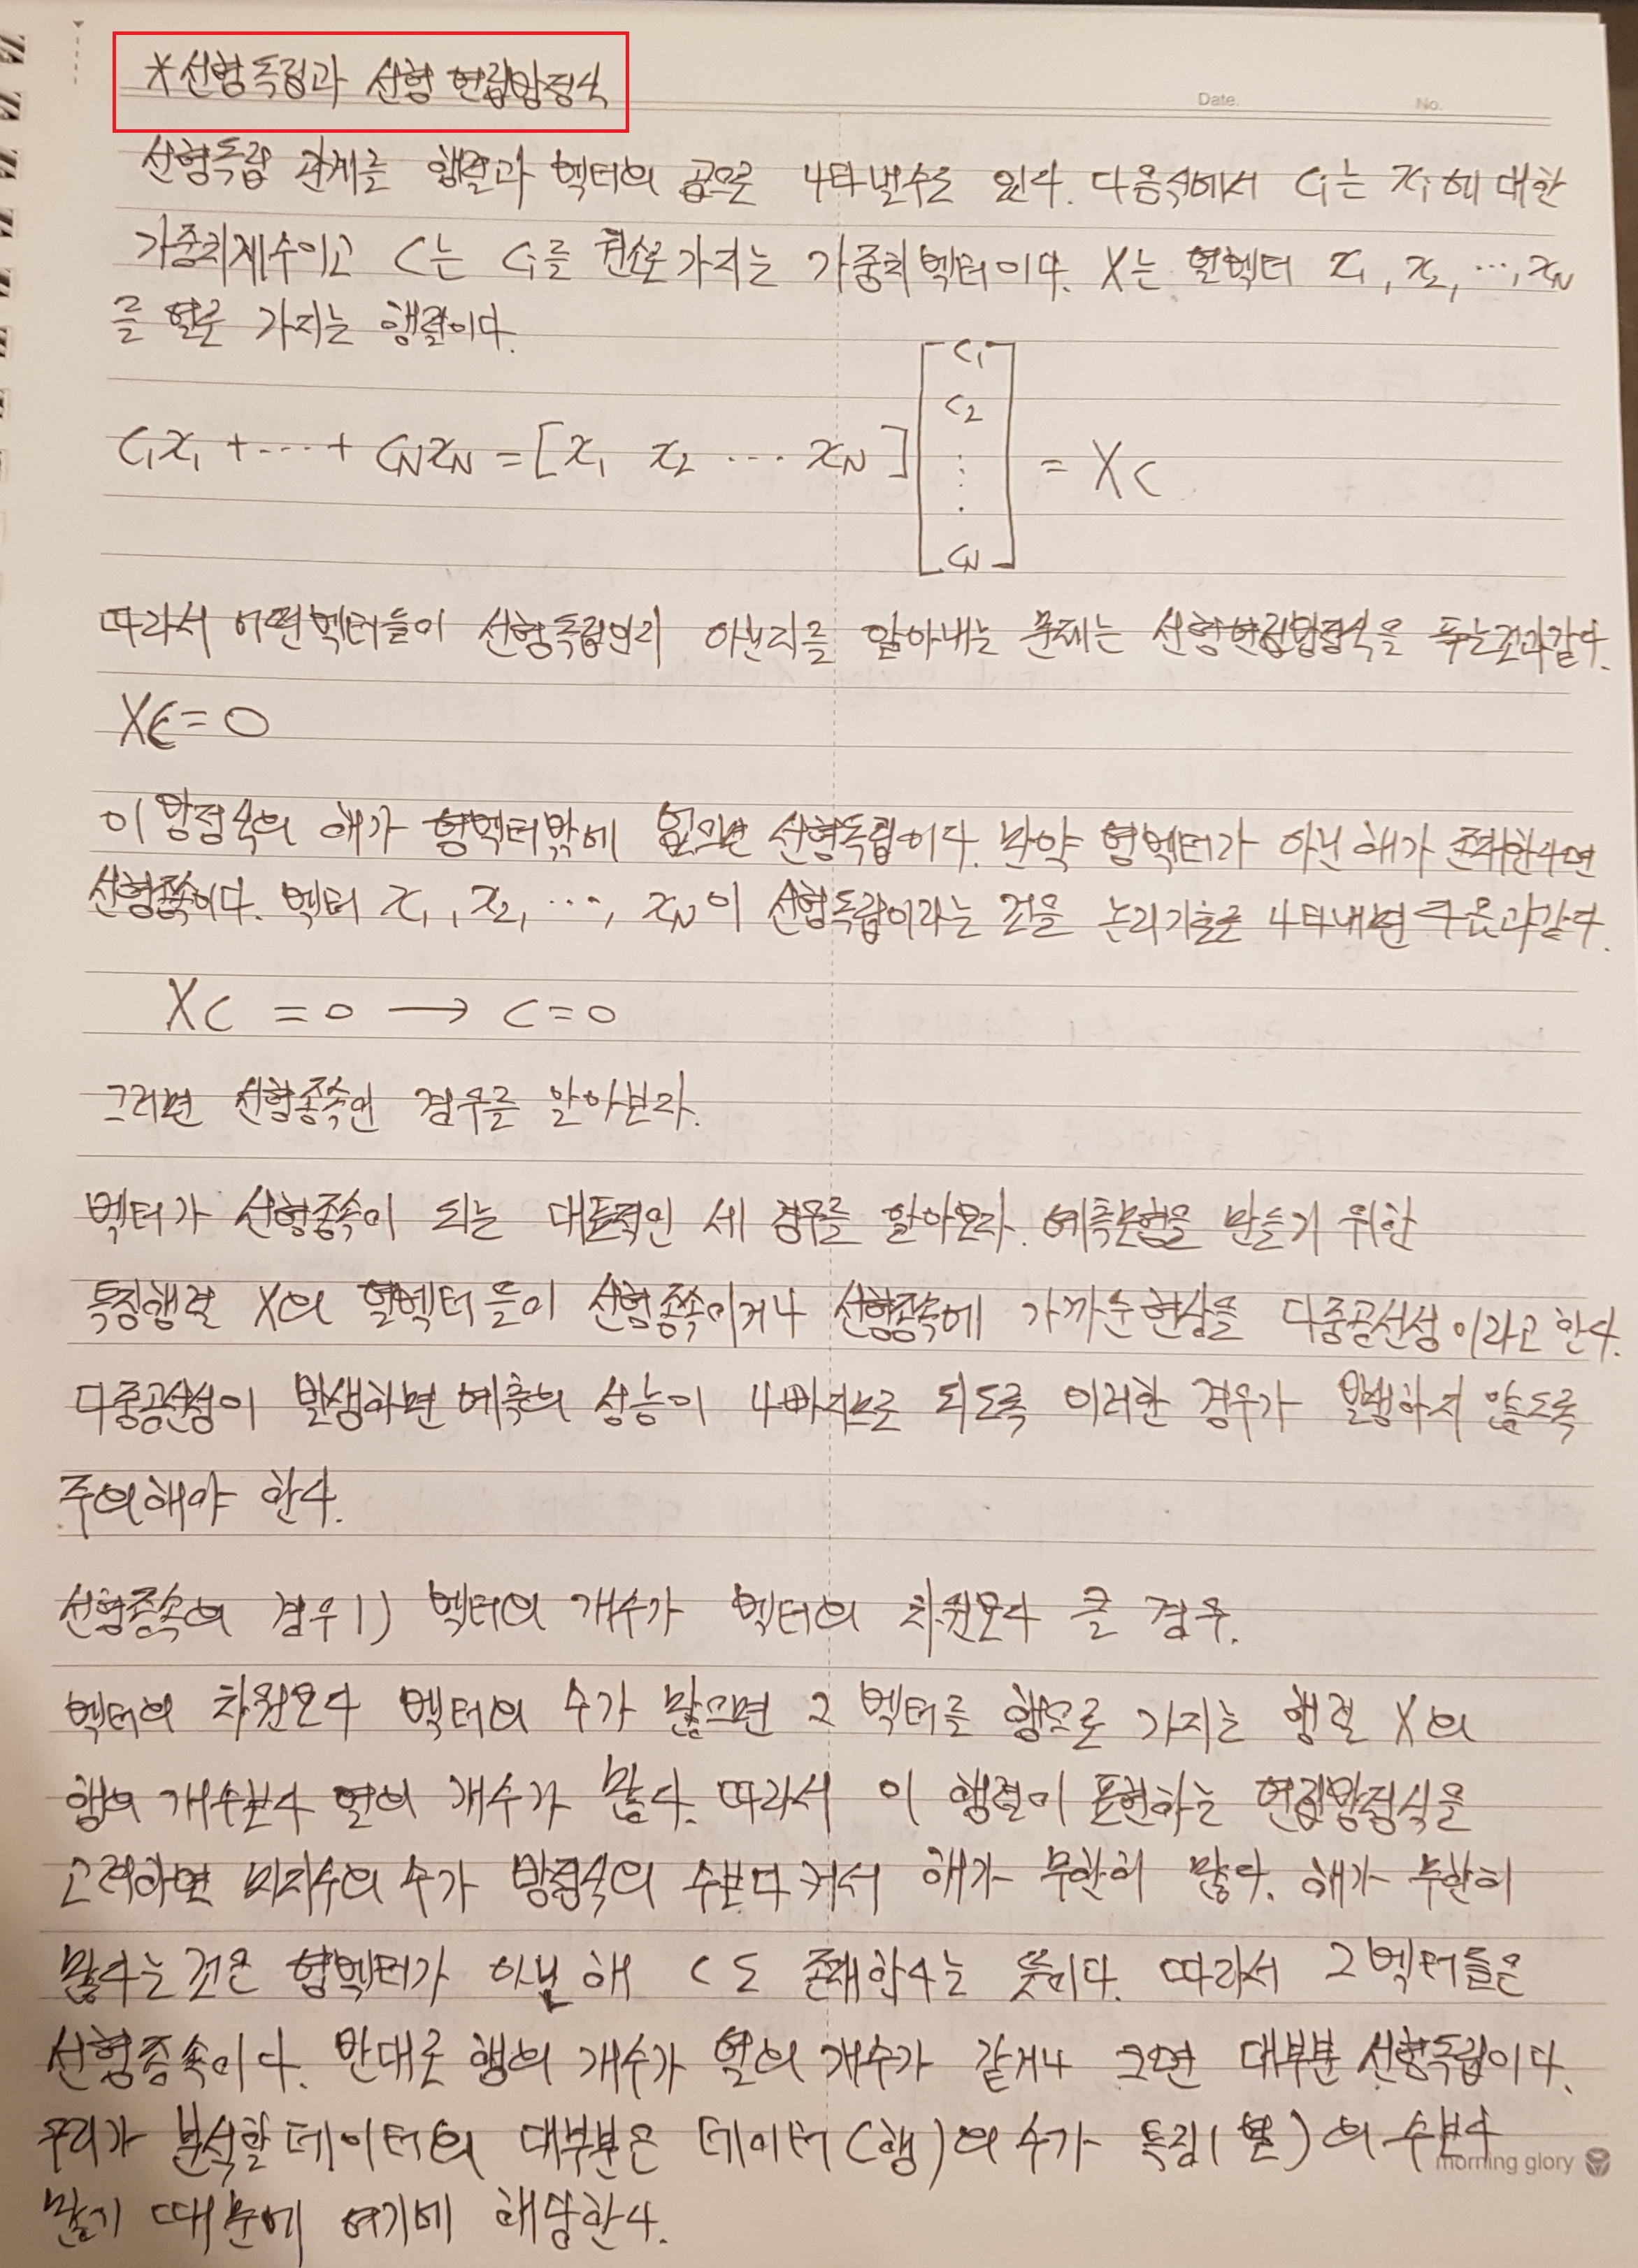 *선형독립과 선형 연립방정식
Date. No.
선형독립 관계를 행렬과 벡터의 곱으로 나타낼수도 있다. 다음식에서 ci는 xi에 대한
가중치계수이고 c는 ci를 원소로 가지는 가중치벡터이다. X는 열벡터 x1, x2, ⋯, xN
를 열로 가지는 행렬이다.
c1x1 + ⋯ + cNxN = [x1 x2 ⋯ xN] [c1 c2 ⋮ cN] = Xc
따라서 어떤벡터들이 선형독립인지 아닌지를 알아내는 문제는 선형연립방정식을 푸는것과같다.
Xc = 0
이 방정식의 해가 영벡터밖에 없으면 선형독립이다. 만약 영벡터가 아닌 해가 존재한다면
선형종속이다. 벡터 x1, x2, ⋯, xN이 선형독립이라는 것을 논리기호로 나타내면 다음과같다.
Xc = 0 → c = 0
그러면 선형종속인 경우를 알아보자.
벡터가 선형종속이 되는 대표적인 세 경우를 알아보자. 예측모형을 만들기 위한
특징행렬 X의 열벡터들이 선형종속이거나 선형종속에 가까운현상을 다중공선성이라고 한다.
다중공선성이 발생하면 예측의 성능이 나빠지므로 되도록 이러한 경우가 발생하지 않도록
주의해야 한다.
선형종속의 경우1) 벡터의 개수가 벡터의 차원보다 큰 경우.
벡터의 차원보다 벡터의 수가 많으면 그 벡터를 행으로 가지는 행렬 X의
행의 개수보다 열의 개수가 많다. 따라서 이 행렬이 표현하는 연립방정식을
고려하면 미지수의 수가 방정식의 수보다 커서 해가 무한히 많다. 해가 무한히
많다는 것은 영벡터가 아닌 해 c도 존재한다는 뜻이다. 따라서 그벡터들은
선형종속이다. 반대로 행의 개수가 열의 개수가 같거나 크면 대부분 선형독립이다.
우리가 분석할 데이터의 대부분은 데이터(행)의 수가 특징(열)의 수보다
morning glory
많기 때문에 여기에 해당한다.